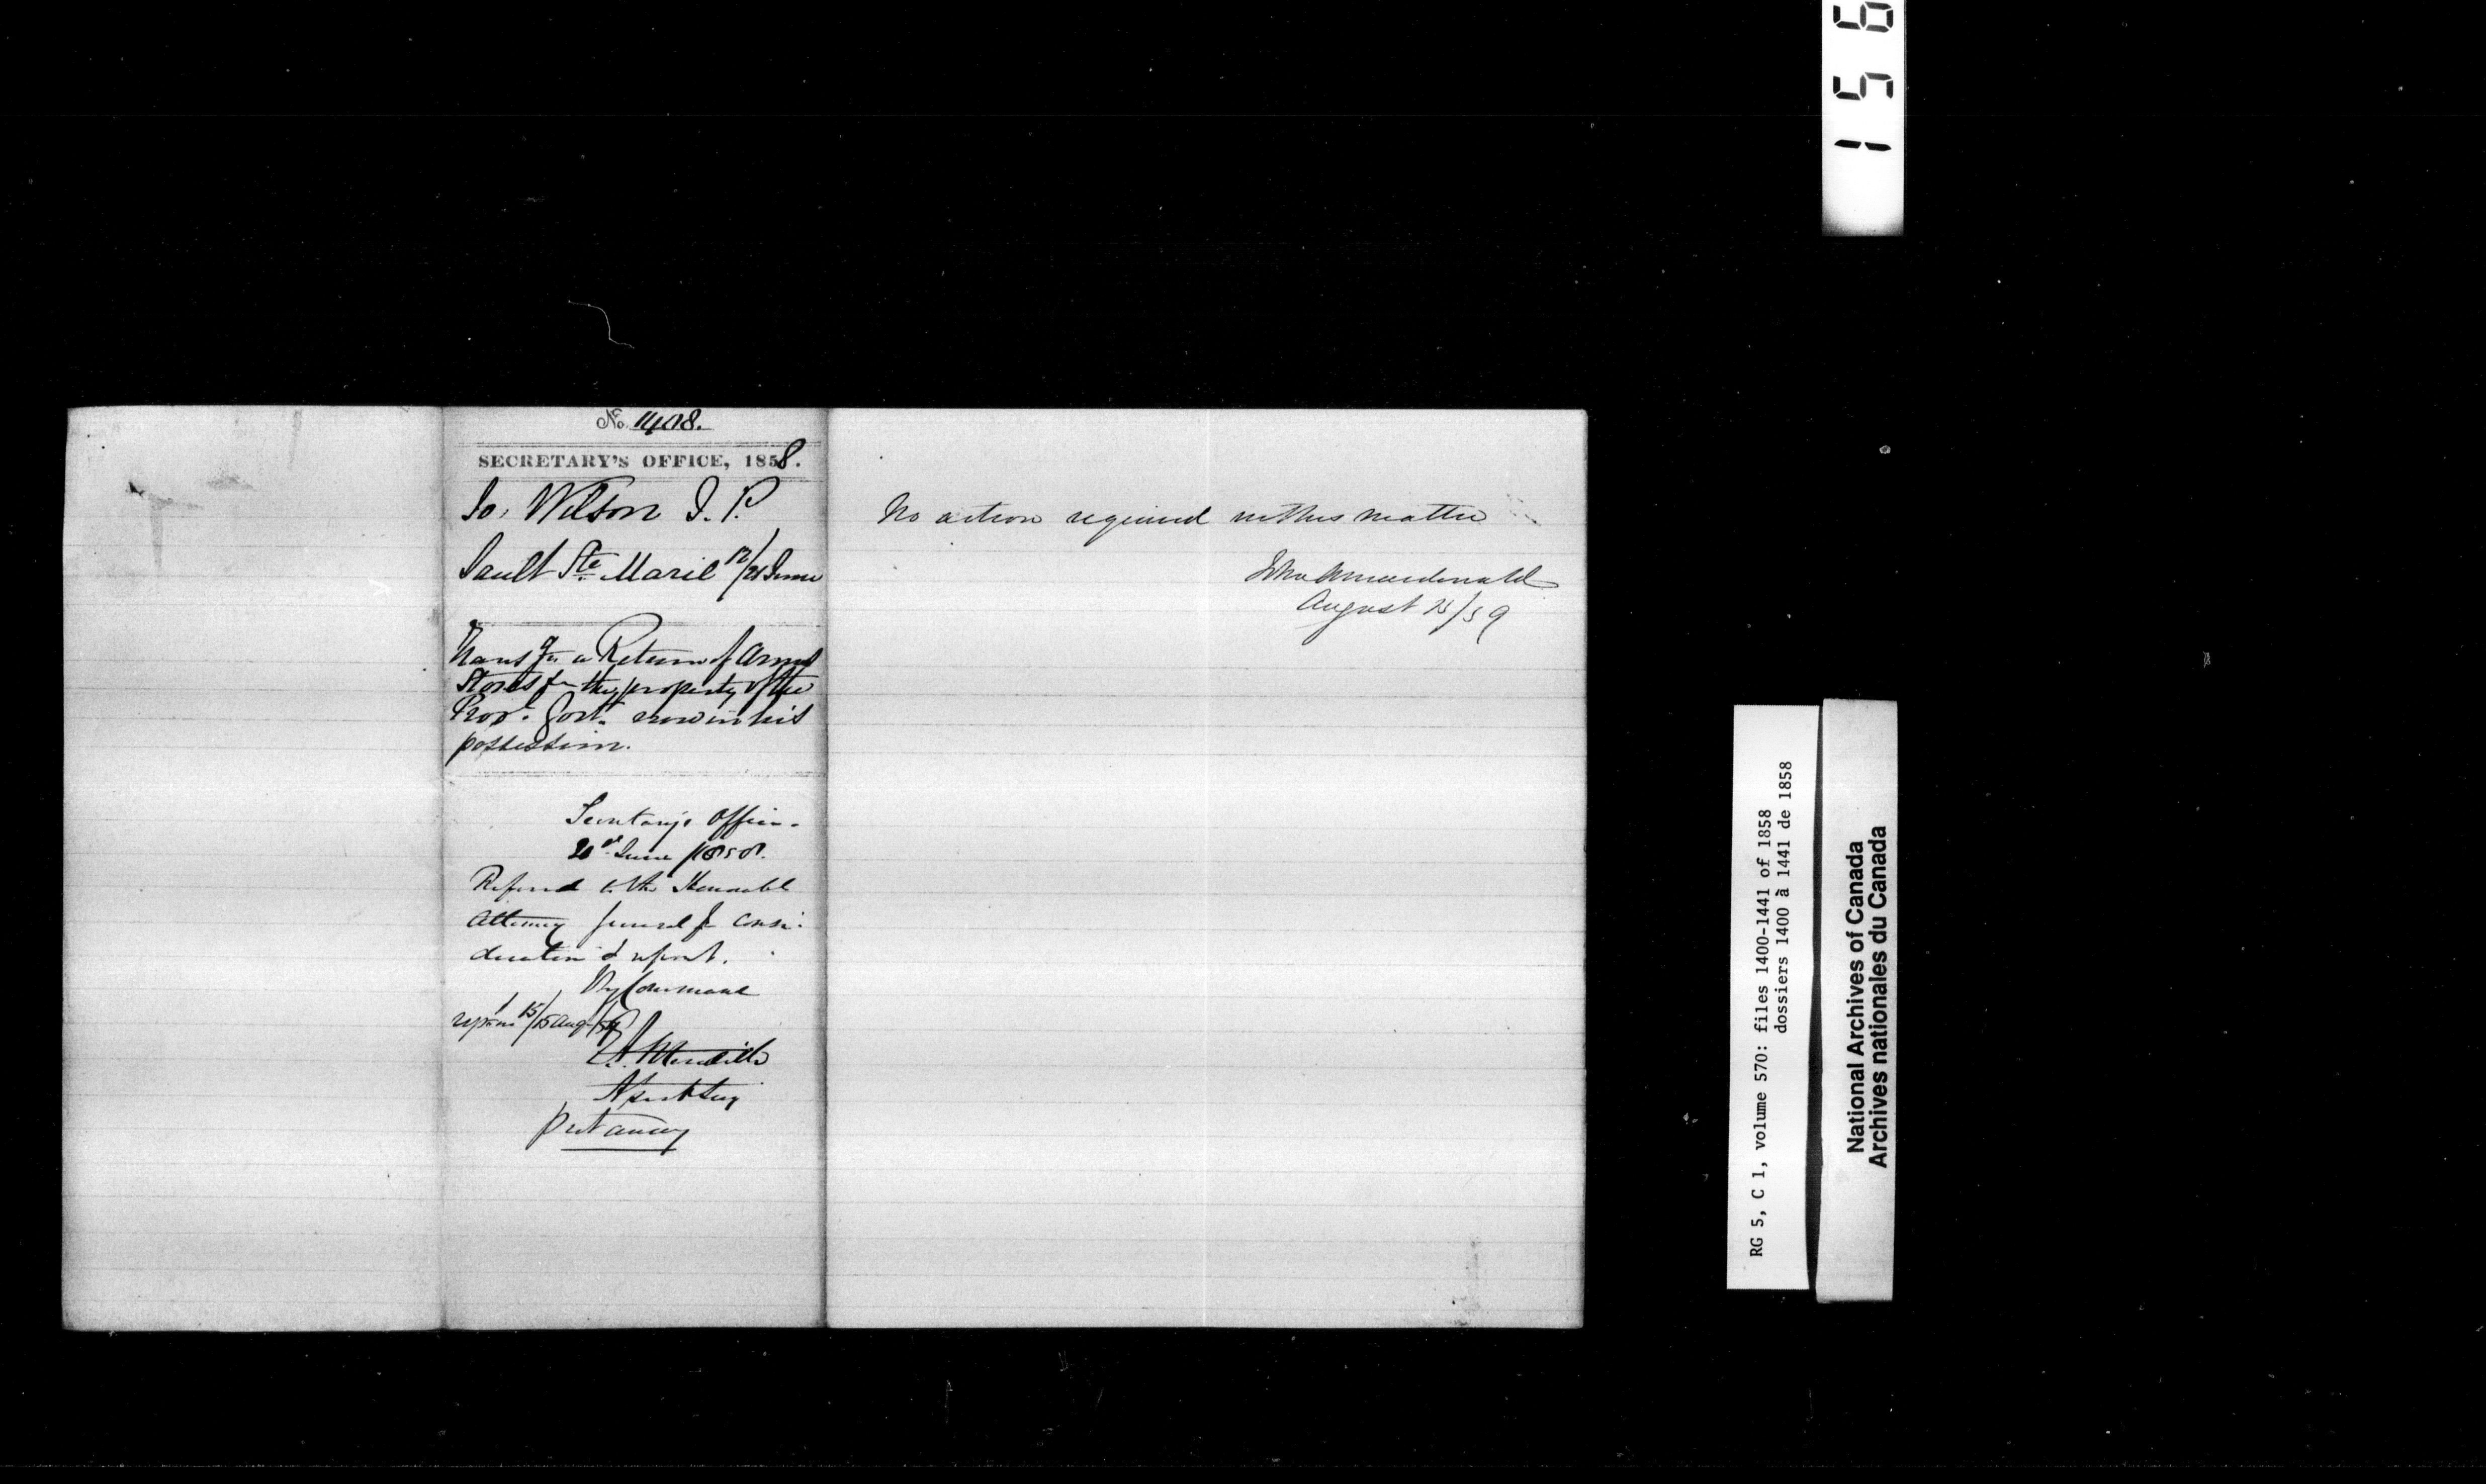 No. 1408.
SECRETARY'S OFFICE, 1858.
Jo. Wilson J. P.
Sault Ste Marie 12/21 June
Transg. a Return of Arms
Stores &c the property of the
Prov. Govt. now in his
possession.
Secretary's Office.
June 1858.
Referred to the Honorable
Attorney General for consi-
deration & report.
By Command
15/15 Aug/59
E. A. Meredith
Asst Secy
No action required in this matter
John A Macdonald
August 15/59
156
RG 5, C 1, volume 570: files 1400-1441 of 1858
dossiers 1400 à 1441 de 1858
National Archives of Canada
Archives nationales du Canada